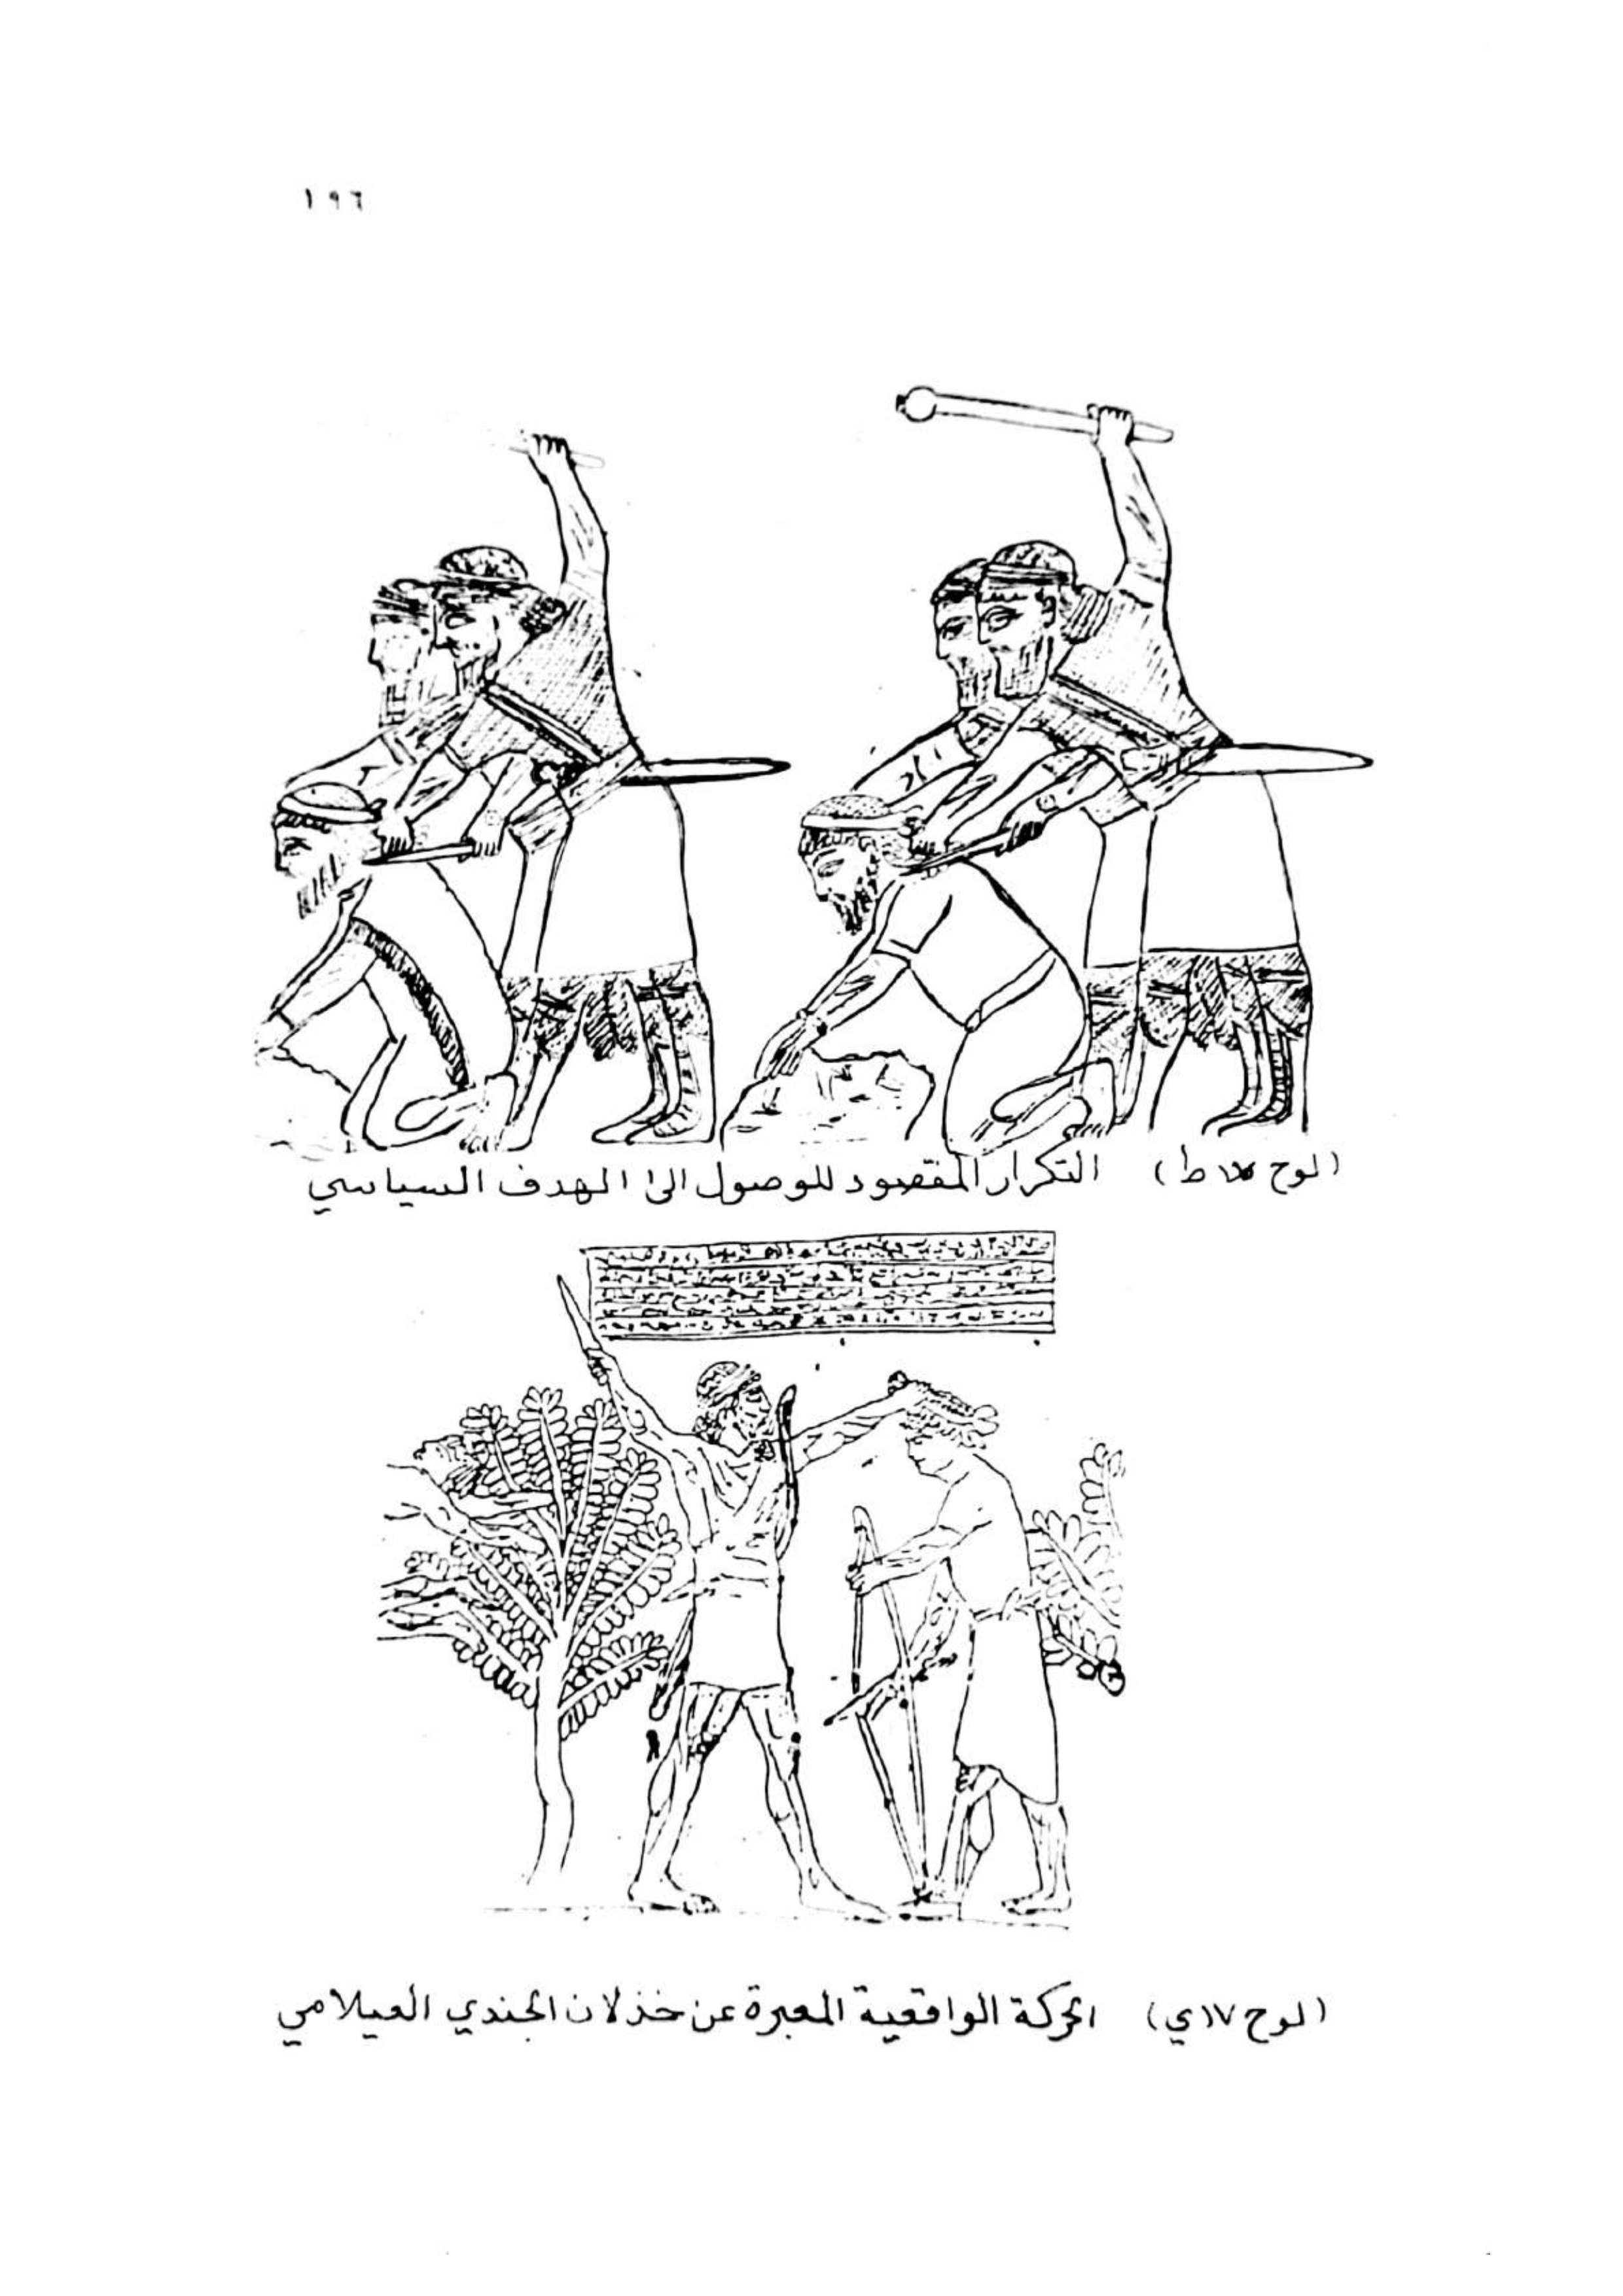 ١٩٦
(لوح ١٧ ط) التكرار المقصود للوصول الى الهدف السياسي
(لوح ١٧ي) الحركة الواقعية المعبرة عن خذلان الجندي العيلامي